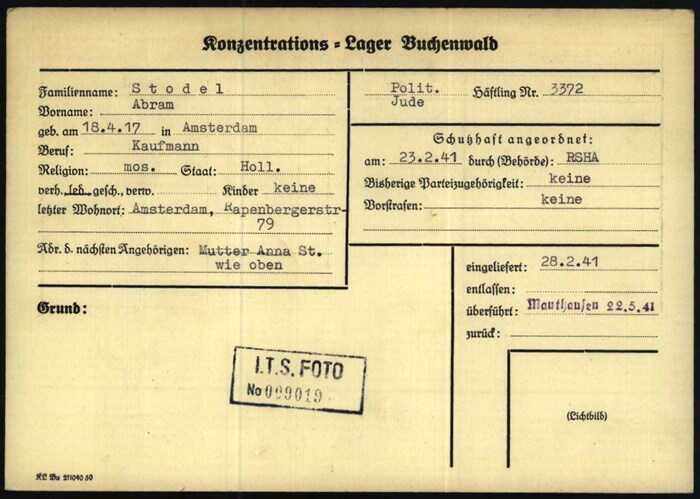 Konzentrations = Lager Buchenwald
Familienname: Stodel
Vorname: Abram
geb. am 18.4.17 in Amsterdam
Beruf: Kaufmann
Religion: mos. Staat: Holl.
verh. led. gesch., verw. Kinder keine
letzter Wohnort: Amsterdam, Rapenbergerstr-
79
Adr. d. nächsten Angehörigen: Mutter Anna St.
wie oben
Grund:
Polit. Häftling Nr. 3372
Jude
Schutzhaft angeordnet:
am: 23.2.41 durch (Behörde): RSHA
Bisherige Parteizugehörigkeit: keine
Vorstrafen: keine
eingeliefert: 28.2.41
entlassen:
überführt: Mauthausen 22.5.41
zurück:
I.T.S. FOTO
No 009019
(Lichtbild)